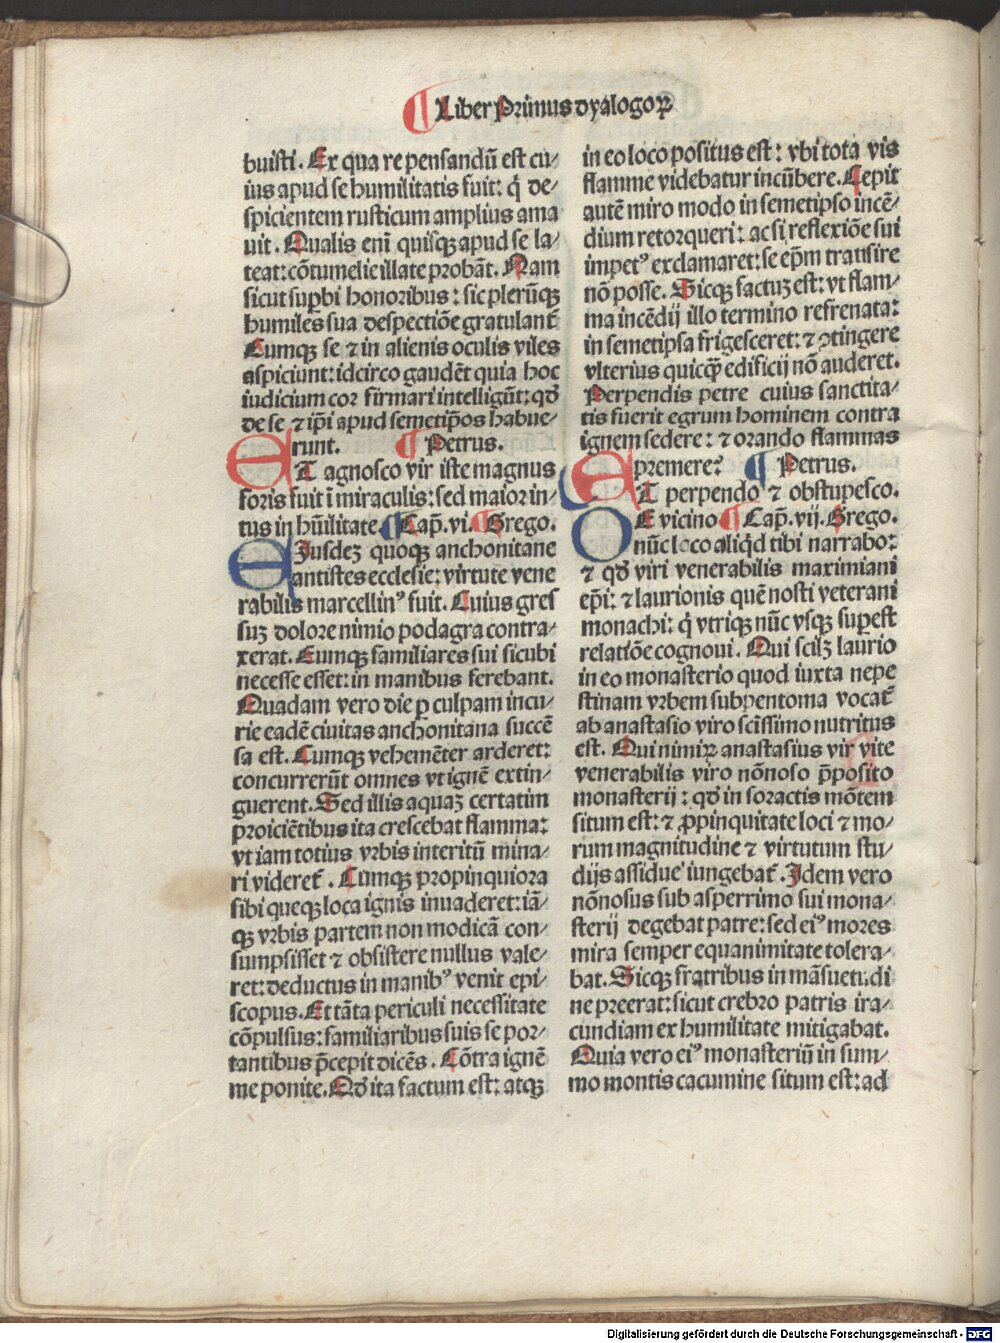 ¶ Liber Primus dyalogoꝝ
buisti. Ex qua re pensandū est cu⸗
ius apud se humilitatis fuit: q̇ de⸗
spicientem rusticum amplius ama
uit. Qualis eni quisqꝫ apud se la⸗
teat: cōtumelie illate probāt. Nam
sicut suꝑbi honoribus: sic plerūqꝫ
humiles sua despectiōe gratulant᷑
Cumqꝫ se ⁊ in alienis oculis viles
aspiciunt: idcirco gaudēt quia hoc
iudicium cor firmari intelligūt: qd̄
de se ⁊ ip̄i apud semetip̄os habue⸗
runt. ¶ Petrus.
ET agnosco vir iste magnus
foris fuit ī miraculis: sed maior in⸗
tus in hūilitate. ¶ Cap̄. vi. ¶ Grego.
EIusdeꝫ quoqꝫ anchonitane
antistes ecclesie: virtute vene
rabilis marcellinꝰ fuit. Cuius gres
suꝫ dolore nimio podagra contra⸗
xerat. Cumqꝫ familiares sui sicubi
necesse esset: in manibus ferebant.
Quadam vero die ꝑ culpam incu⸗
rie eadē ciuitas anchonitana succē
sa est. Cumqꝫ vehemēter arderet:
concurrerūt omnes vt ignē extin⸗
guerent. Sed illis aquaꝫ certatim
proiciētibus ita crescebat flamma:
vt iam totius vrbis interitū mina⸗
ri videret᷑. Cumqꝫ propinquiora
sibi queqꝫ loca ignis inuaderet: iā⸗
qꝫ vrbis partem non modicā con⸗
sumpsisset ⁊ obsistere nullus vale⸗
ret: deductus in manibꝰ venit epi⸗
scopus. Et tāta periculi necessitate
cōpulsus: familiaribus suis se por⸗
tantibus p̄cepit dicēs. Cōtra ignē
me ponite. Qd̄ ita factum est: atqꝫ
in eo loco positus est: vbi tota vis
flamme videbatur incūbere. Cepit
autē miro modo in semetipso incē⸗
dium retorqueri: ac si reflexiōe sui
impetꝰ exclamaret: se ep̄m transire
nō posse. Sicqꝫ factuꝫ est: vt flam⸗
ma incēdij illo termino refrenata:
in semetipsa frigesceret: ⁊ ꝯtingere
vlterius quicqꝫ edificij nō auderet.
Perpendis petre cuius sanctita⸗
tis fuerit egrum hominem contra
ignem sedere: ⁊ orando flammas
premere? ¶ Petrus.
ET perpendo ⁊ obstupesco.
DE vicino ¶ Cap̄. vij. Grego.
nūc loco aliq̇d tibi narrabo:
⁊ qd̄ viri venerabilis maximiani
ep̄i: ⁊ laurionis quē nosti veterani
monachi: q̇ vtriqꝫ nūc vsqꝫ suꝑest
relatiōe cognoui. Qui scilꝫ laurio
in eo monasterio quod iuxta nepe
stinam vrbem subpentoma vocat᷑
ab anastasio viro scīssimo nutritus
est. Qui nimiꝝ anastasius vir vite
venerabilis viro nōnoso p̄posito
monasterij: qd̄ in soractis mōtem
situm est: ⁊ ꝓpinquitate loci ⁊ mo⸗
rum magnitudine ⁊ virtutum stu⸗
dijs assidue iungebat᷑. Idem vero
nōnosus sub asperrimo sui mona⸗
sterij degebat patre: sed eiꝰ mores
mira semper equanimitate tolera⸗
bat. Sicqꝫ fratribus in māsuetudi
ne preerat: sicut crebro patris ira⸗
cundiam ex humilitate mitigabat.
Quia vero eiꝰ monasteriū in sum⸗
mo montis cacumine situm est: ad
Digitalisierung gefördert durch die Deutsche Forschungsgemeinschaft - DFG